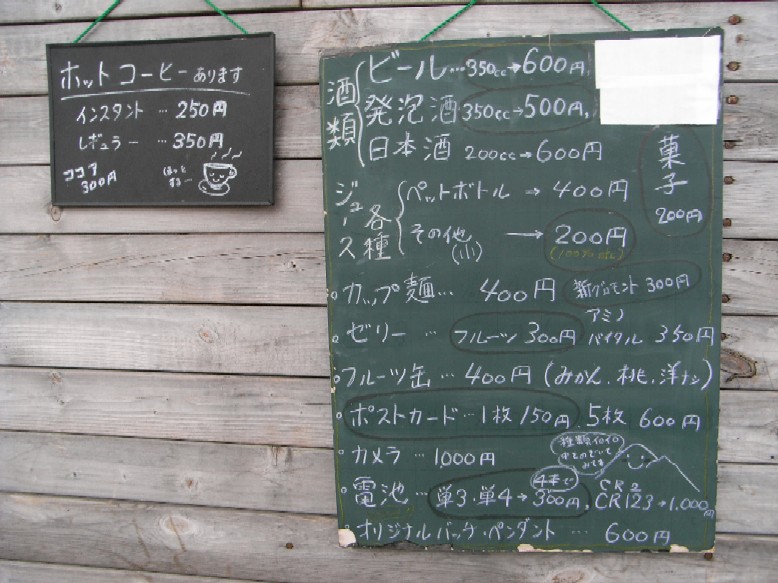 ホットコーヒーあります
インスタント…250円
レギュラー…350円
ココア
300円
ほっと
するー
酒類
ビール…350cc→600円
発泡酒350cc→500円
日本酒200cc→600円
菓子
200円
ジュース各種
ペットボトル→400円
その他→200円
カップ麺…400円
300円
ゼリー…フルーツ300円
アミノ
バイタル350円
フルーツ缶…400円(みかん、桃、洋ナシ)
ポストカード…1枚150円、5枚600円
カメラ…1,000円
種類イロイロ
電池…単3・単4→300円、
4本で
CR2
CR123→1,000円
オリジナルバッチ・ペンダント…600円